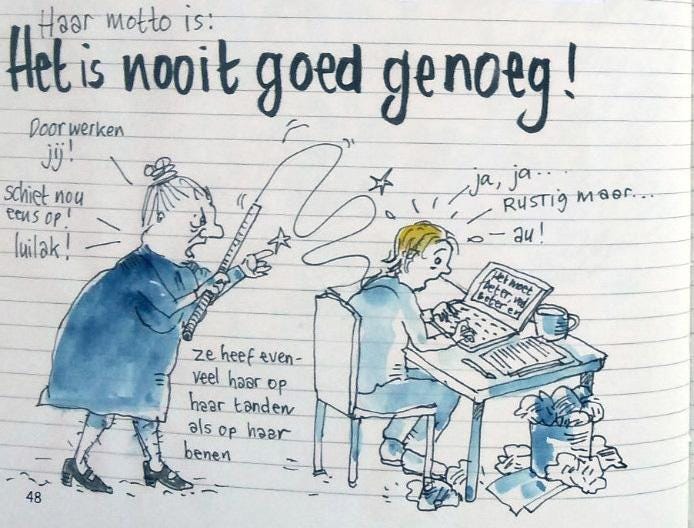 Haar motto is:
Het is nooit goed genoeg!
Doorwerken
jij!
schiet nou
eens op!
luilak!
ja, ja...
RUSTIG maar...
au!
Het moet
beter, veel
beter en
ze heef even-
veel haar op
haar tanden
als op haar
benen
48